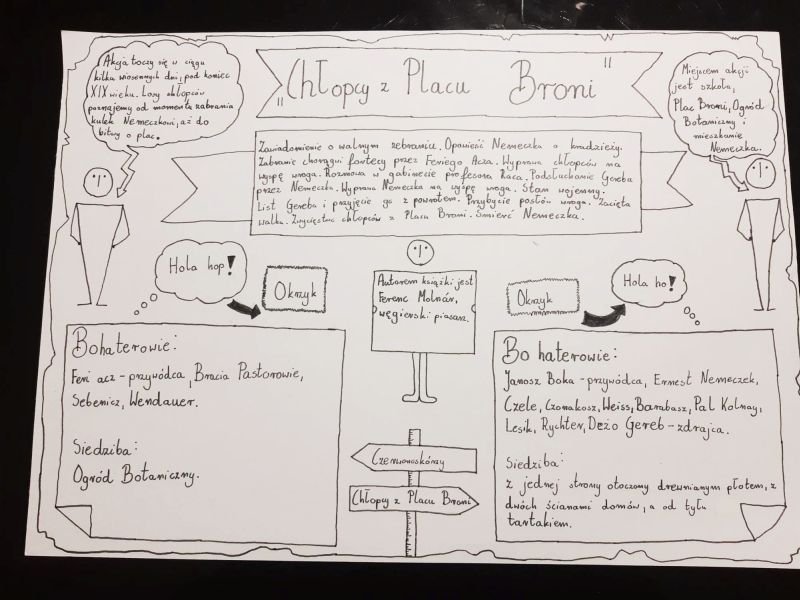 Akcja toczy się w ciągu
kilka wiosennych dni, pod koniec
XIX wieku. Losy chłopców
poznajemy od momentu zabrania
kulek Nemeczkowi, aż do
bitwy o plac.
"Chłopcy z Placu Broni"
Miejscem akcji
jest szkoła,
Plac Broni, Ogród
Botaniczny i
mieszkanie
Nemeczka.
Zawiadomienie o walnym zebraniu. Opowieść Nemeczka o kradzieży.
Zabranie chorągwi fortecy przez Feriego Acza. Wyprawa chłopców na
wyspę wroga. Rozmowa w gabinecie profesora Raca. Podsłuchanie Gereba
przez Nemeczka. Wyprawa Nemeczka na wyspę wroga. Stan wojenny.
List Gereba i przyjęcie go z powrotem. Przybycie posłów wroga. Zacięta
walka. Zwycięstwo chłopców z Placu Broni. Śmierć Nemeczka.
Hola hop!
Okrzyk
Autorem książki jest
Ferenc Molnár,
węgierski pisarz.
Okrzyk
Hola ho!
Bohaterowie:
Feri acz - przywódca, Bracia Pastorowie,
Sebenicz, Wendauer.
Siedziba:
Ogród Botaniczny.
Czerwonoskórzy
Chłopcy z Placu Broni
Bohaterowie:
Janosz Boka - przywódca, Ernest Nemeczek,
Czele, Czonakosz, Weiss, Barabasz, Pal Kolnay,
Lesik, Rychter, Deżo Gereb - zdrajca.
Siedziba:
z jednej strony otoczony drewnianym płotem, z
dwóch ścianami domów, a od tyłu
tartakiem.